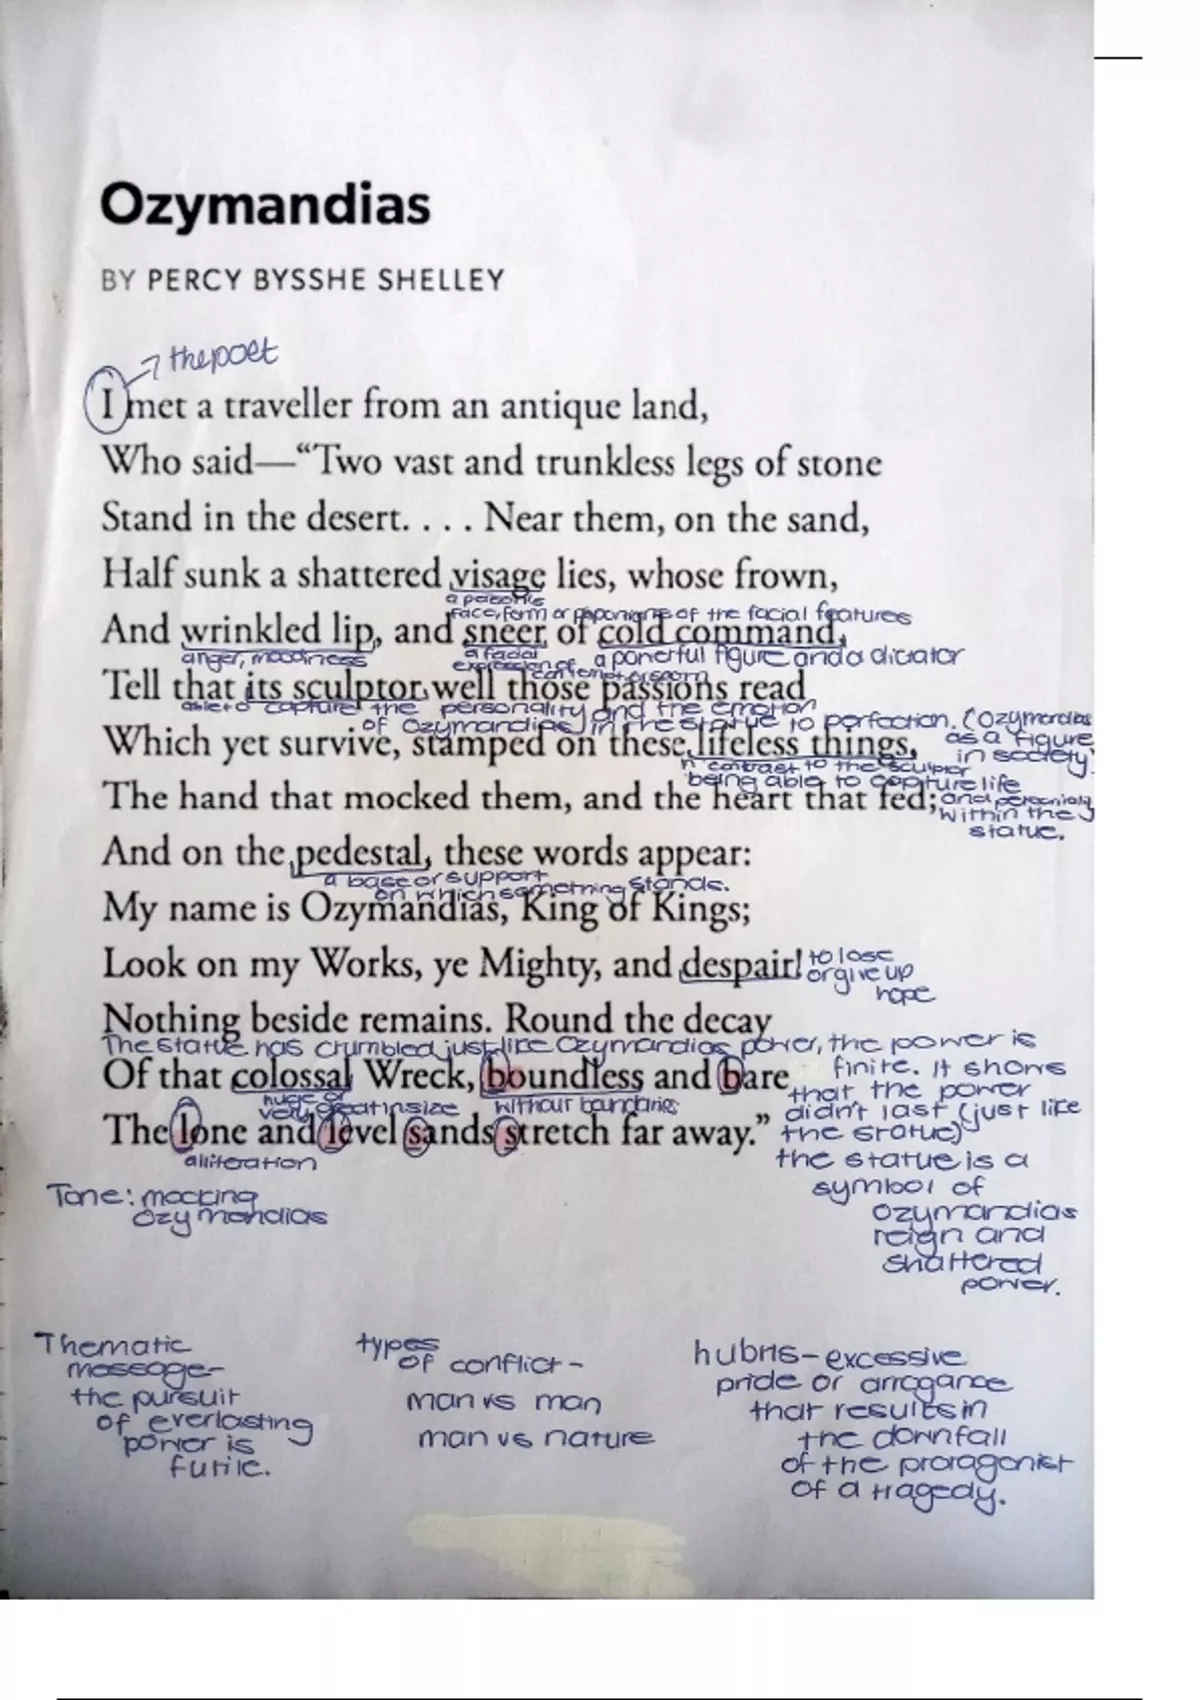 Ozymandias
BY PERCY BYSSHE SHELLEY
the poet
I met a traveller from an antique land,
Who said—“Two vast and trunkless legs of stone
Stand in the desert. . . . Near them, on the sand,
Half sunk a shattered visage lies, whose frown,
a person's
face, form or proportions of the facial features
And wrinkled lip, and sneer of cold command,
anger, moodiness
a facial
expression of
contempt or scorn
a powerful figure and a dictator
Tell that its sculptor well those passions read
able to capture the personality and the emotion
of Ozymandias in the statue to perfection. (Ozymandias
as a figure
in society)
Which yet survive, stamped on these lifeless things,
in contrast to the sculptor
being able to capture life
and personality
within the
statue.
The hand that mocked them, and the heart that fed;
And on the pedestal, these words appear:
a base or support
on which something stands.
My name is Ozymandias, King of Kings;
Look on my Works, ye Mighty, and despair!
to lose
or give up
hope
Nothing beside remains. Round the decay
The statue has crumbled just like Ozymandias power, the power is
finite. It shows
that the power
didn't last (just like
the statue)
Of that colossal Wreck, boundless and bare
huge or
very great in size
without boundaries
The lone and level sands stretch far away.”
alliteration
the statue is a
symbol of
ozymandias
reign and
shattered
power.
Tone: mocking
Ozymandias
Thematic
message-
the pursuit
of everlasting
power is
futile.
types
of conflict-
man vs man
man vs nature
hubris-excessive
pride or arrogance
that results in
the downfall
of the protagonist
of a tragedy.